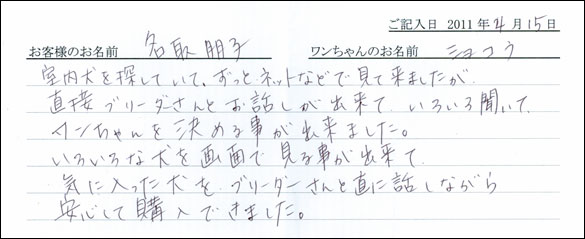 ご記入日 2011年4月15日
お客様のお名前 名取朋子 ワンちゃんのお名前 ショコラ
室内犬を探していて、ずっとネットなどで見て来ましたが
直接ブリーダさんとお話しが出来て、いろいろ聞いて、
ワンちゃんを決める事が出来ました。
いろいろな犬を画面で見る事が出来て
気に入った犬をブリーダーさんと直に話しながら
安心して購入できました。